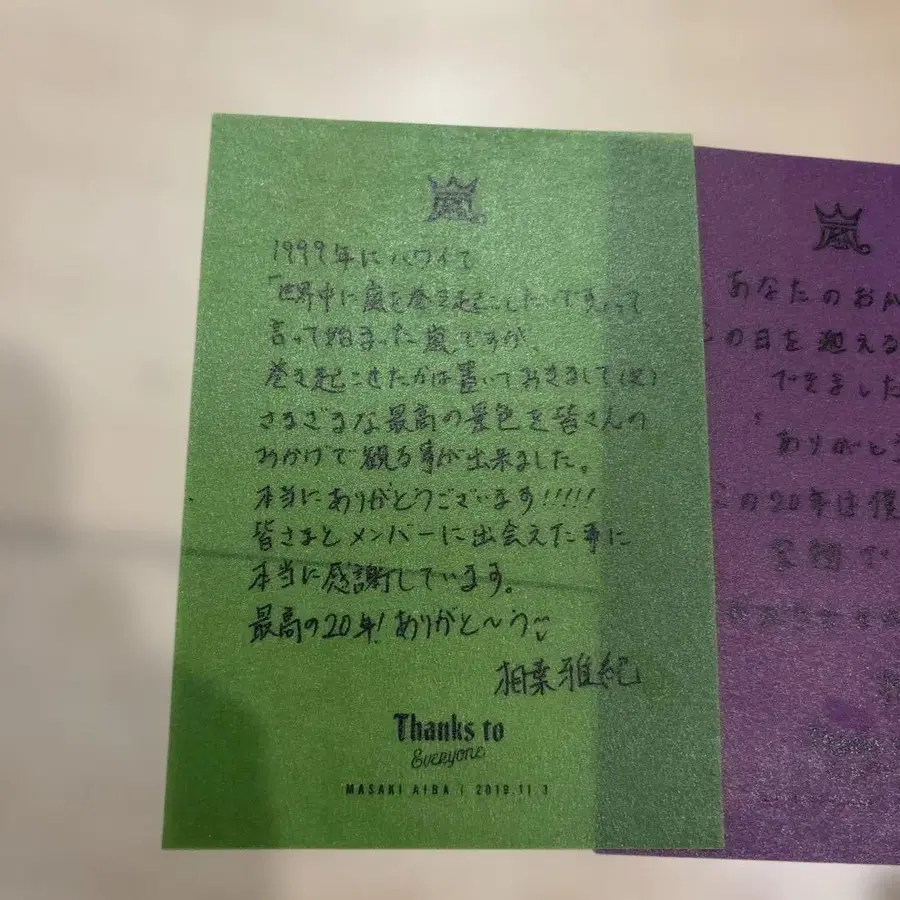 嵐
1999年にハワイで
「世界中に嵐を巻き起こしたいです」って
言って始まった嵐ですが、
巻き起こせたかは置いておきまして(笑)
さまざまな最高の景色を皆さんの
おかげで観る事が出来ました。
本当にありがとうございます!!!!!
皆さまとメンバーに出会えた事に
本当に感謝しています。
最高の20年!ありがと〜う
相葉雅紀
Thanks to
Everyone
MASAKI AIBA / 2019.11.3
嵐
あなたのおか
の日を迎える
できました
ありがとう
この20年は僕